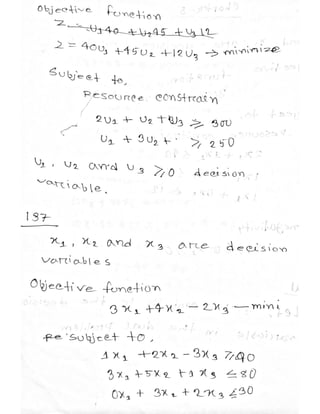 Objective function
Z = U₁40 + U₂45 + U₃12
Z = 40U₁ + 45U₂ + 12U₃ → minimize
Subject to,
Resource constrain
2U₁ + U₂ + U₃ ≥ 300
U₁ + 3U₂ + ≥ 250
U₁, U₂ and U₃ ≥ 0 decision
variable.
137
x₁, x₂ and x₃ are decision
variables
Objective function
3x₁ + 4x₂ - 2x₃ — mini
Subject to,
1x₁ + 2x₂ - 3x₃ ≥ 40
3x₁ + 5x₂ + 1x₃ ≤ 80
0x₁ + 3x₂ + 2x₃ ≤ 30